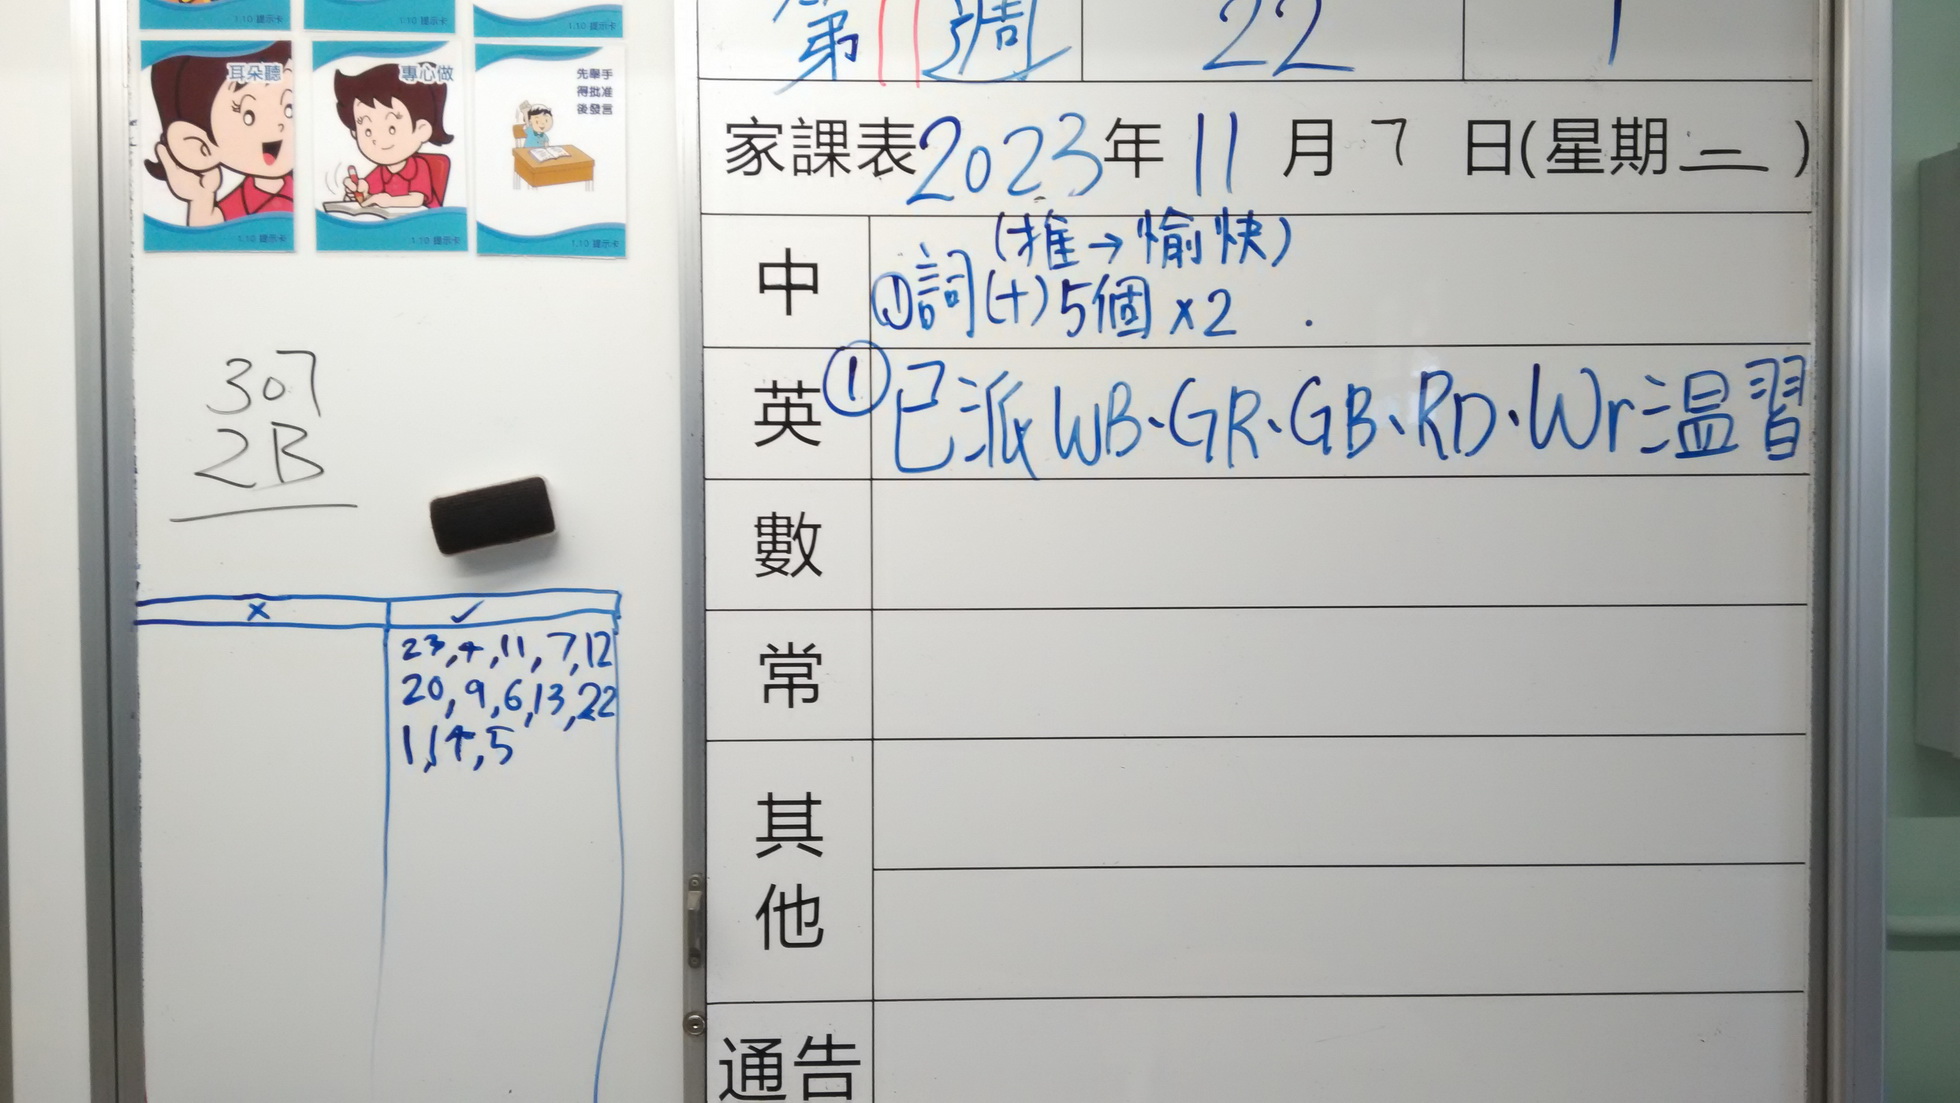 1.10 提示卡
1.10 提示卡
1.10 提示卡
耳朵聽
1.10 提示卡
專心做
1.10 提示卡
先舉手
得批准
後發言
1.10 提示卡
307
2B
× ✓
23,4,11,7,12
20,9,6,13,22
1,14,5
第11週 22 1
家課表2023年11月7日(星期二)
中
(推→愉快)
①詞(十)5個×2
英 ①已派WB、GR、GB、RD、Wr溫習
數
常
其他
通告